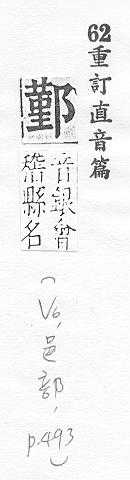 62重訂直音篇
鄞
音銀會
稽縣名
(V6, 邑部, p.493)